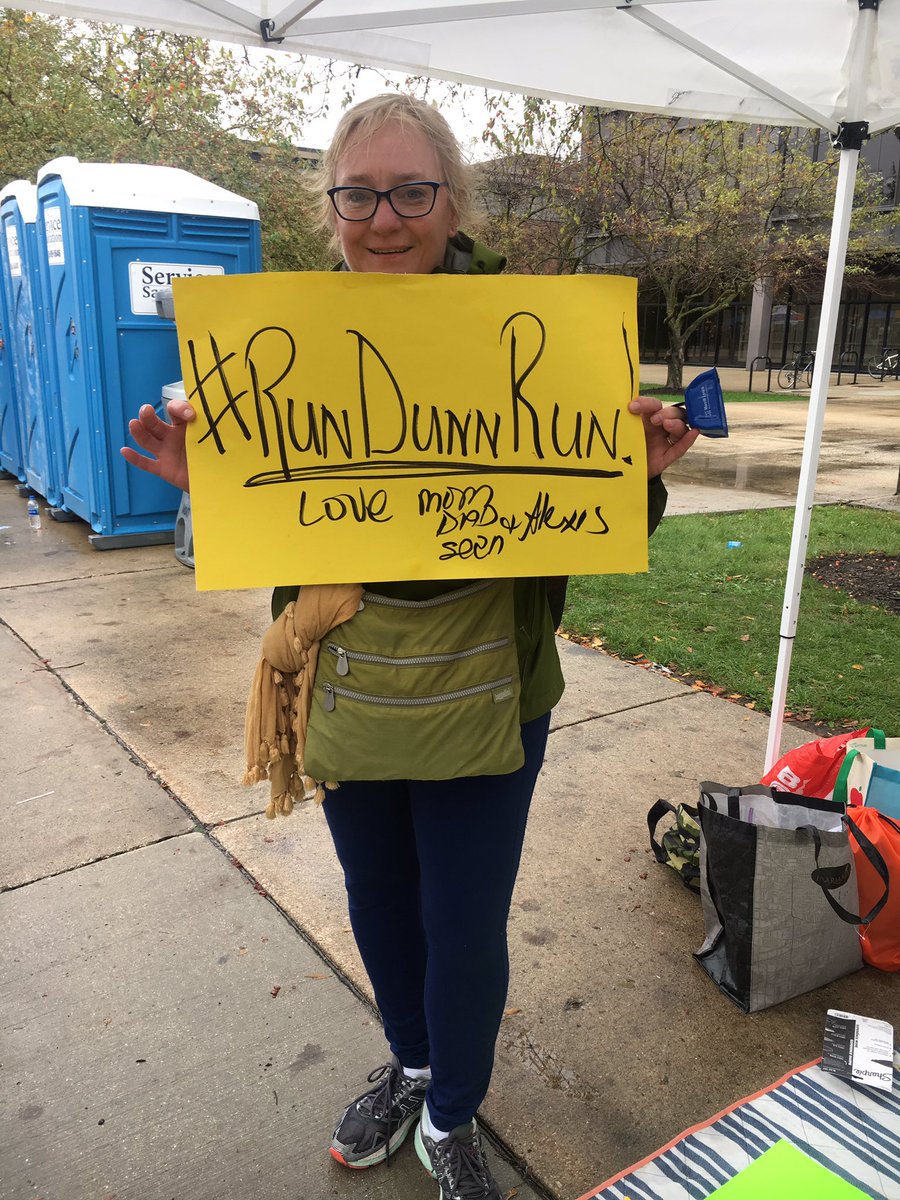 #RunDunnRun!
Love mom
DAD & Alexis
seen
Service
Sharpie